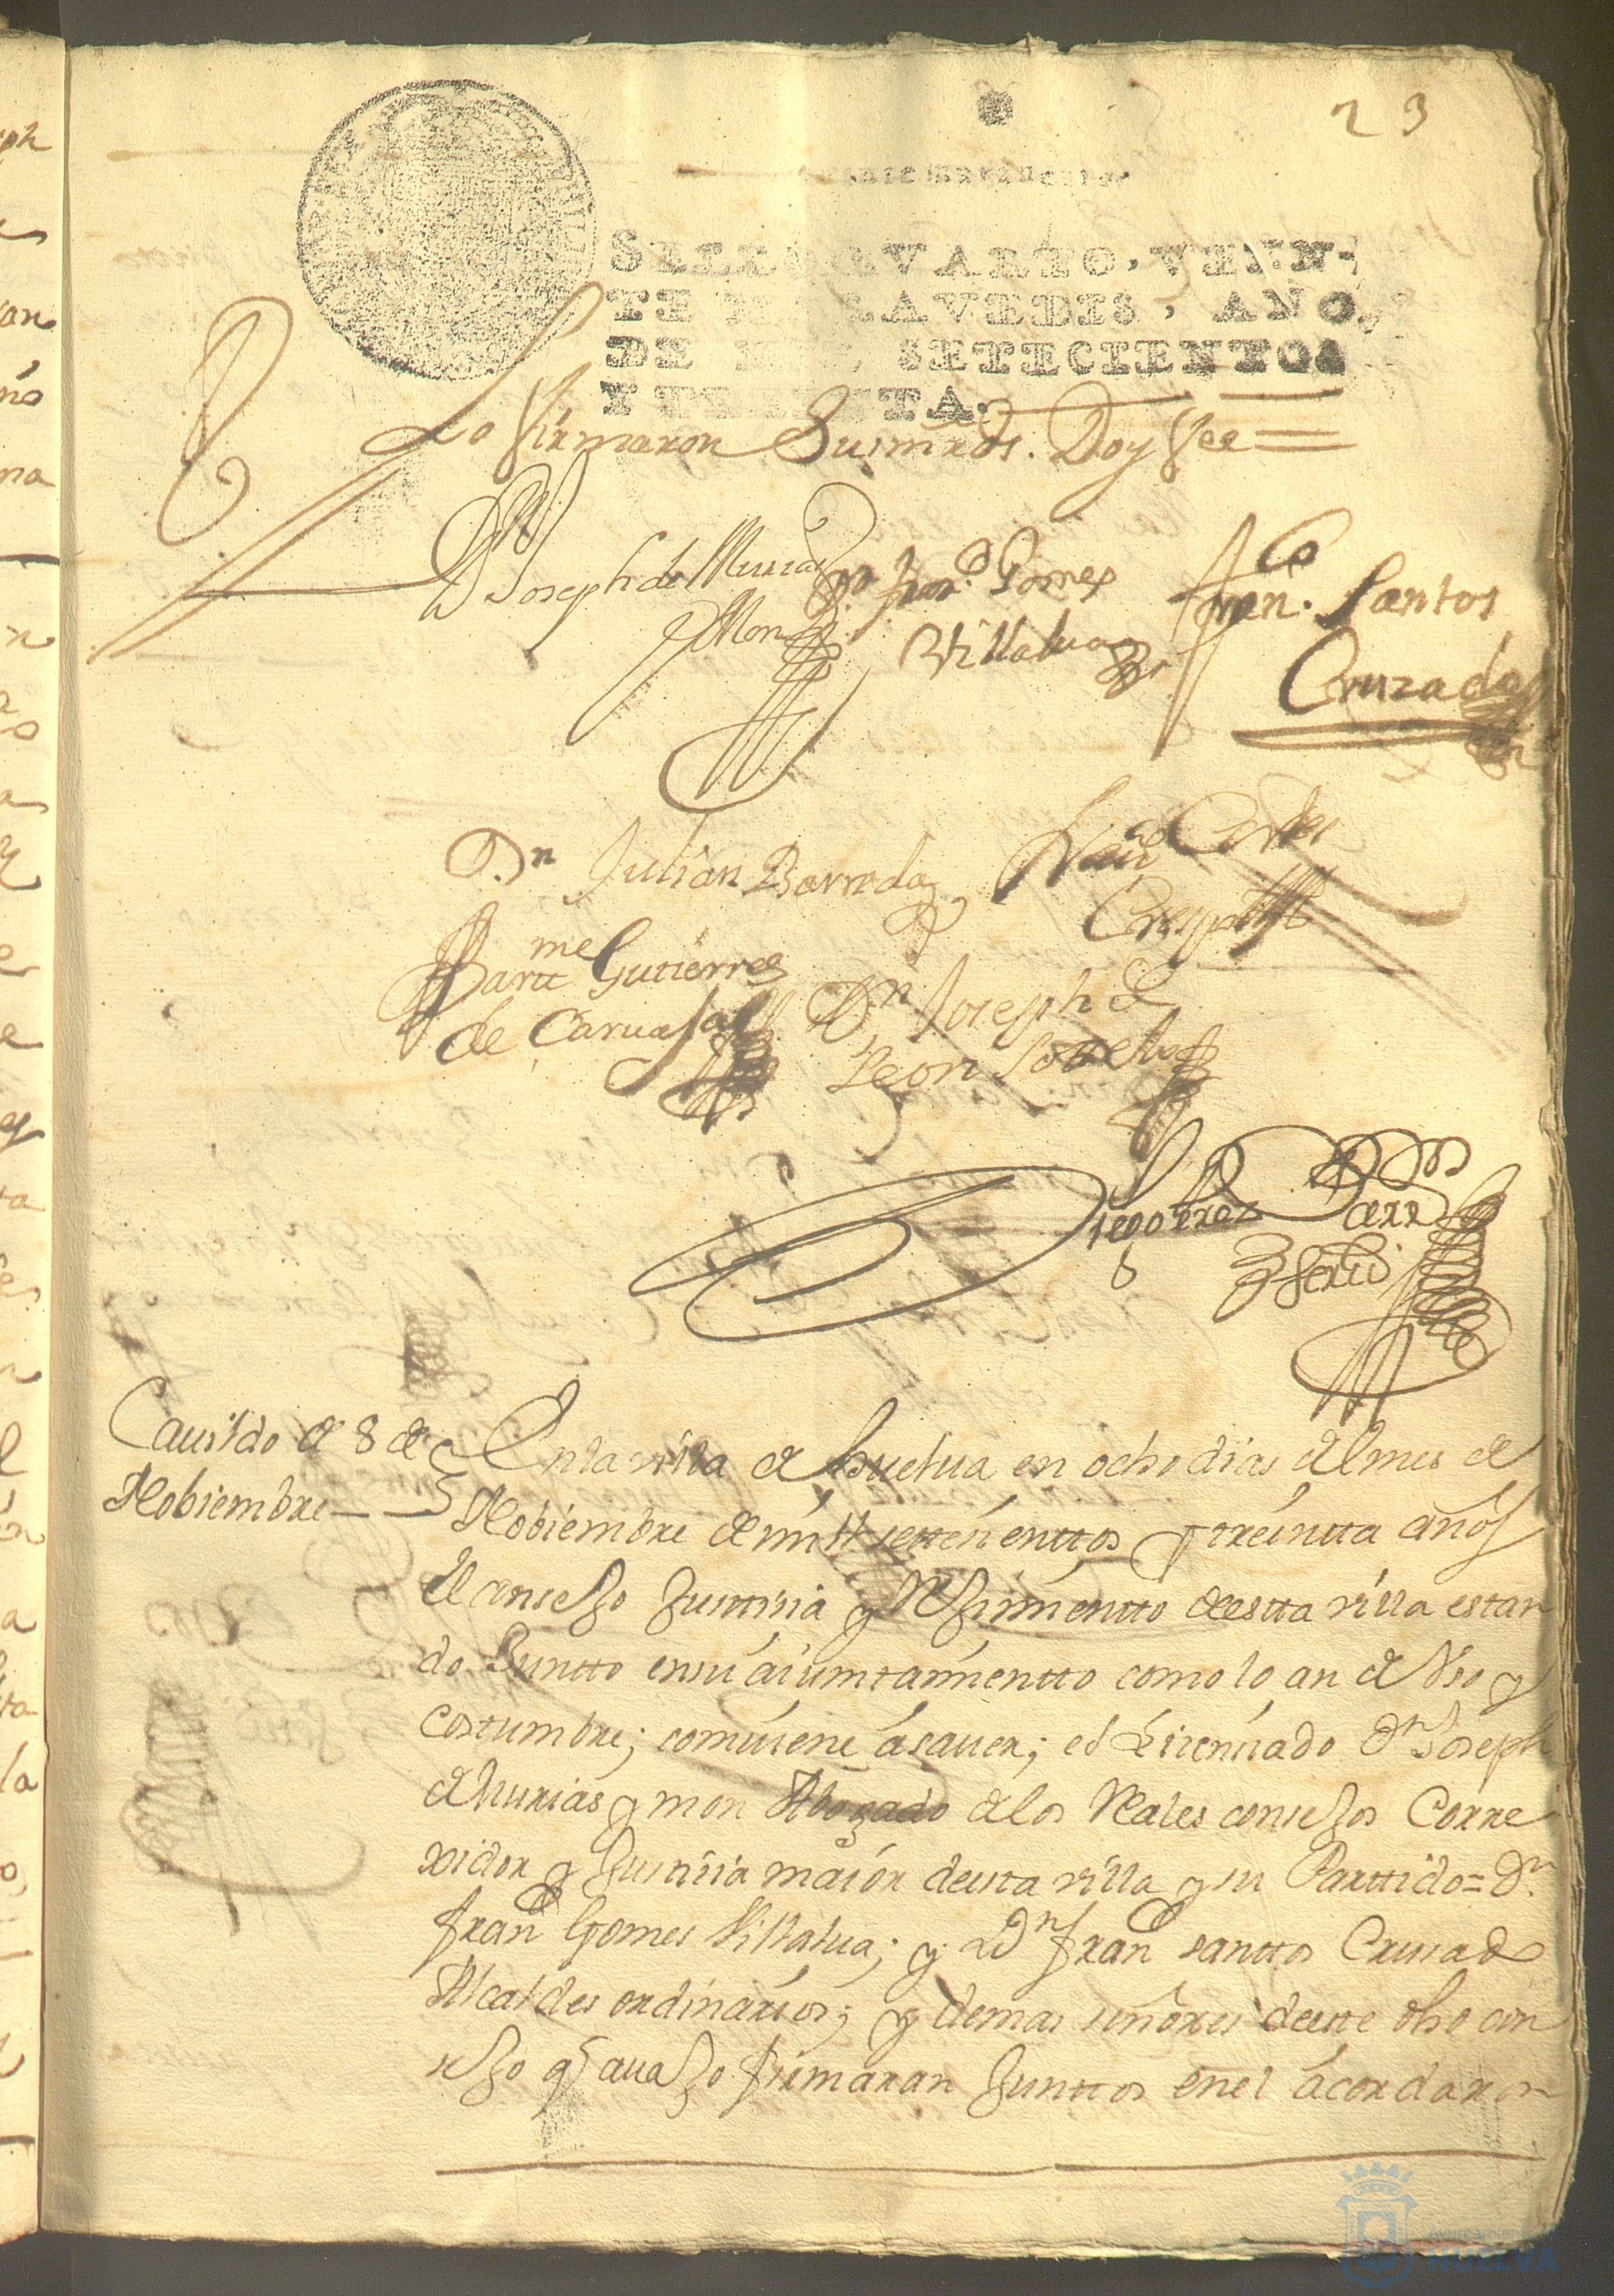 23
SELLO QVARTO, VEIN-
TE MARAVEDIS, AÑO
DE MIL SETECIENTOS
Y TREINTA.
Lo firmaron Susmrds. Doy fee
Dn Joseph de Murias
y Mon
Dn Franco Gomes
Villalua
Franco Santos
Cruzado
Dn Julian Barreda
Cortes
Crespo
Barme Gutierres
de Caruajal
Dn Joseph de
Leon Sotelo
Diego
Cauildo de 8 de
Nobiembre
En la villa de huelua en ocho dias del mes de
Nobiembre de mill settesienttos y treintta años
el consejo Justtisia y Rejimientto de estta villa estan
do Juntto en su aiuntamientto como lo an de Vso y
costumbre; comuiene á sauer; el Lisensiado Dn Joseph
de Murias y mon Abogado de los Reales consejos Corre
xidor y Justisia maior de esta villa y su Parttido = Dn
Franco Gomes Villalua; y Dn Franco santtos Crusado
Alcaldes ordinarios; y demas señores de este dho con
sejo q auajo firmaran Junttos en el acordaron
Ayuntamiento de
HUELVA